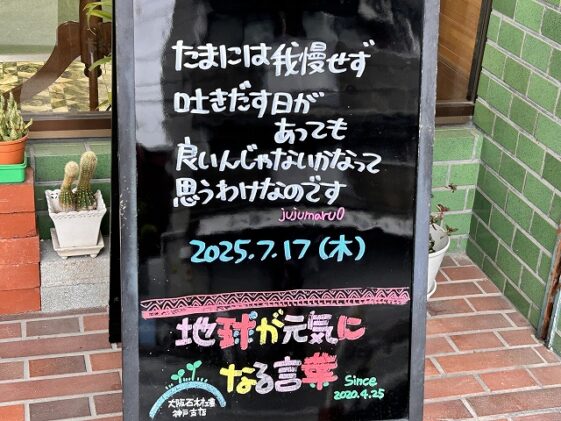 たまには我慢せず
吐きだす日が
あっても
良いんじゃないかなって
思うわけなのです
jujumaru0
2025.7.17(木)
地球が元気に
なる言葉
Since
2020.4.25
大阪石材工業
神戸支店